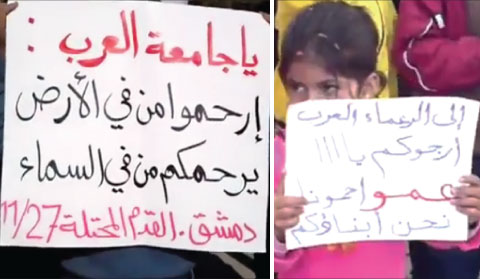 يا جامعة العرب :
إرحموا من في الأرض
يرحمكم من في السماء
دمشق . القدم المحتلة 11/27
إلى الزعماء العرب
أرجوكم يا !!!!
عمو احمونا
نحن أبناؤكم